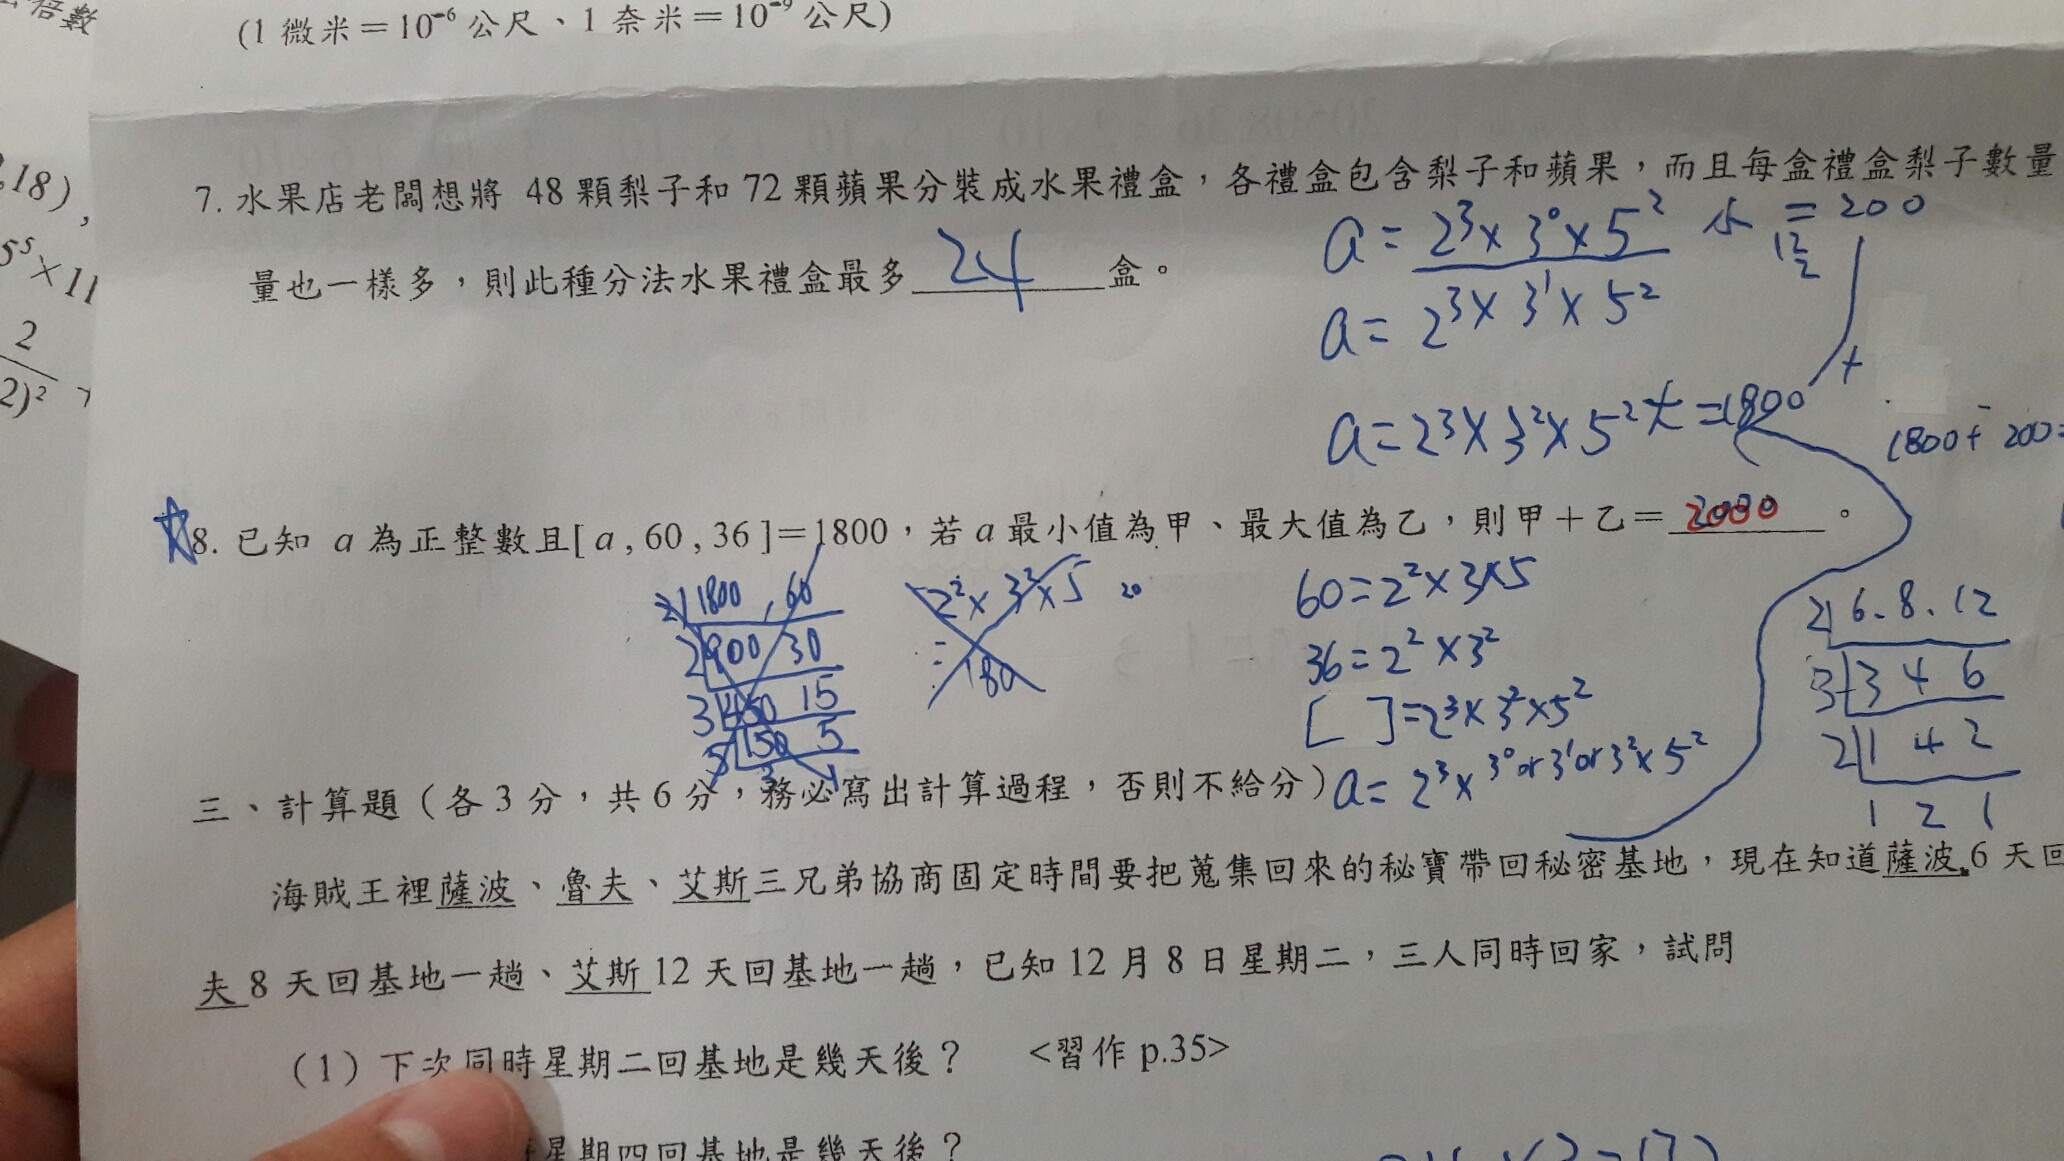 倍數
(1 微米＝10⁻⁶ 公尺、1 奈米＝10⁻⁹ 公尺)
,18),
5⁵×11
2
2)²
7. 水果店老闆想將 48 顆梨子和 72 顆蘋果分裝成水果禮盒，各禮盒包含梨子和蘋果，而且每盒禮盒梨子數量
量也一樣多，則此種分法水果禮盒最多 24 盒。
a = 2³×3⁰×5² 小 = 200
a = 2³×3¹×5²
a = 2³×3²×5² 大 = 1800
+
1800 + 200=
8. 已知 a 為正整數且[ a , 60 , 36 ]＝1800，若 a 最小值為甲、最大值為乙，則甲＋乙＝ 2000 。
2 1800 , 60
2 900 30
3 450 15
5 150 5
2²×3²×5
= 180
20
60=2²×3×5
36=2²×3²
[ ]=2³×3²×5²
a= 2³×3⁰or3¹or3²×5²
2 6.8.12
3 3 4 6
2 1 4 2
1 2 1
三、計算題（各 3 分，共 6 分，務必寫出計算過程，否則不給分）
海賊王裡薩波、魯夫、艾斯三兄弟協商固定時間要把蒐集回來的秘寶帶回秘密基地，現在知道薩波 6 天回
夫 8 天回基地一趟、艾斯 12 天回基地一趟，已知 12 月 8 日星期二，三人同時回家，試問
（1）下次同時星期二回基地是幾天後？ <習作 p.35>
星期四回基地是幾天後？